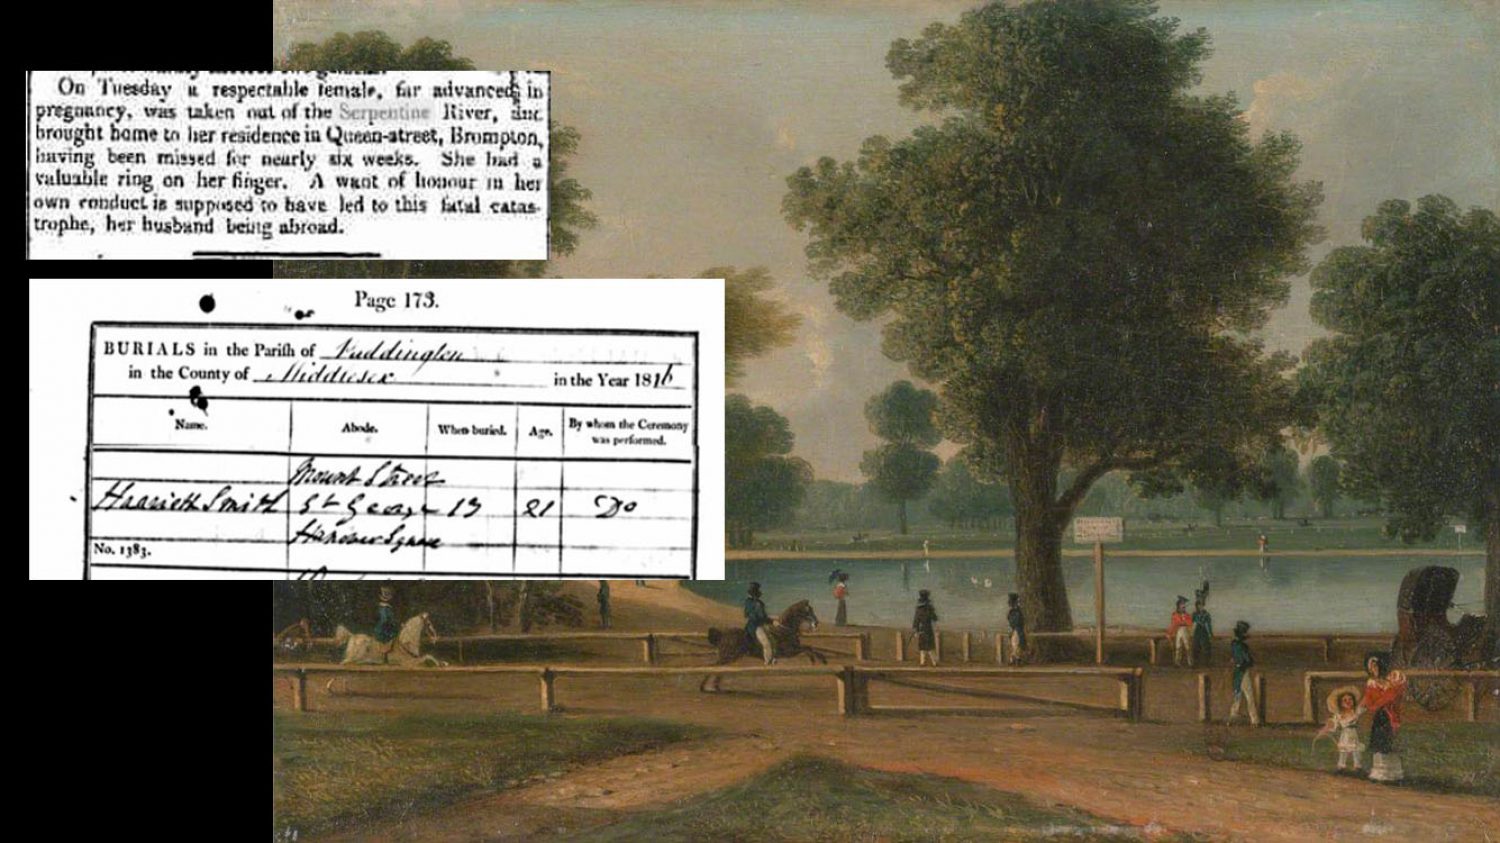 On Tuesday a respectable female, far advanced in
pregnancy, was taken out of the Serpentine River, and
brought home to her residence in Queen-street, Brompton,
having been missed for nearly six weeks. She had a
valuable ring on her finger. A want of honour in her
own conduct is supposed to have led to this fatal catas-
trophe, her husband being abroad.
Page 173.
BURIALS in the Parish of Paddington
in the County of Middlesex in the Year 1816
Name. Abode. When buried. Age. By whom the Ceremony
was performed.
Mount Street
Harriett Smith St George 13 21 Do
Hanover Square
No. 1383.